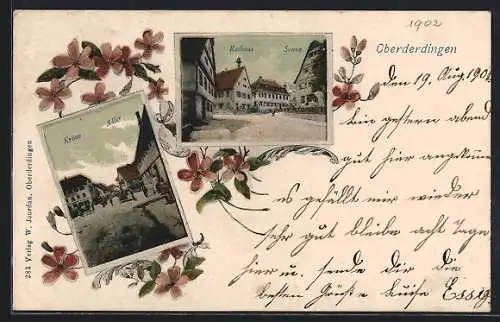 1902
Oberderdingen
Rathaus Sonne
Krone Adler
283 Verlag W. Jourdan, Oberderdingen
Den 19. Aug. 190
bin gestern abend
gut hier angekom
es gefällt mir wieder
sehr gut bleibe acht Tage
hier u. sende dir die
besten Grüße Essig